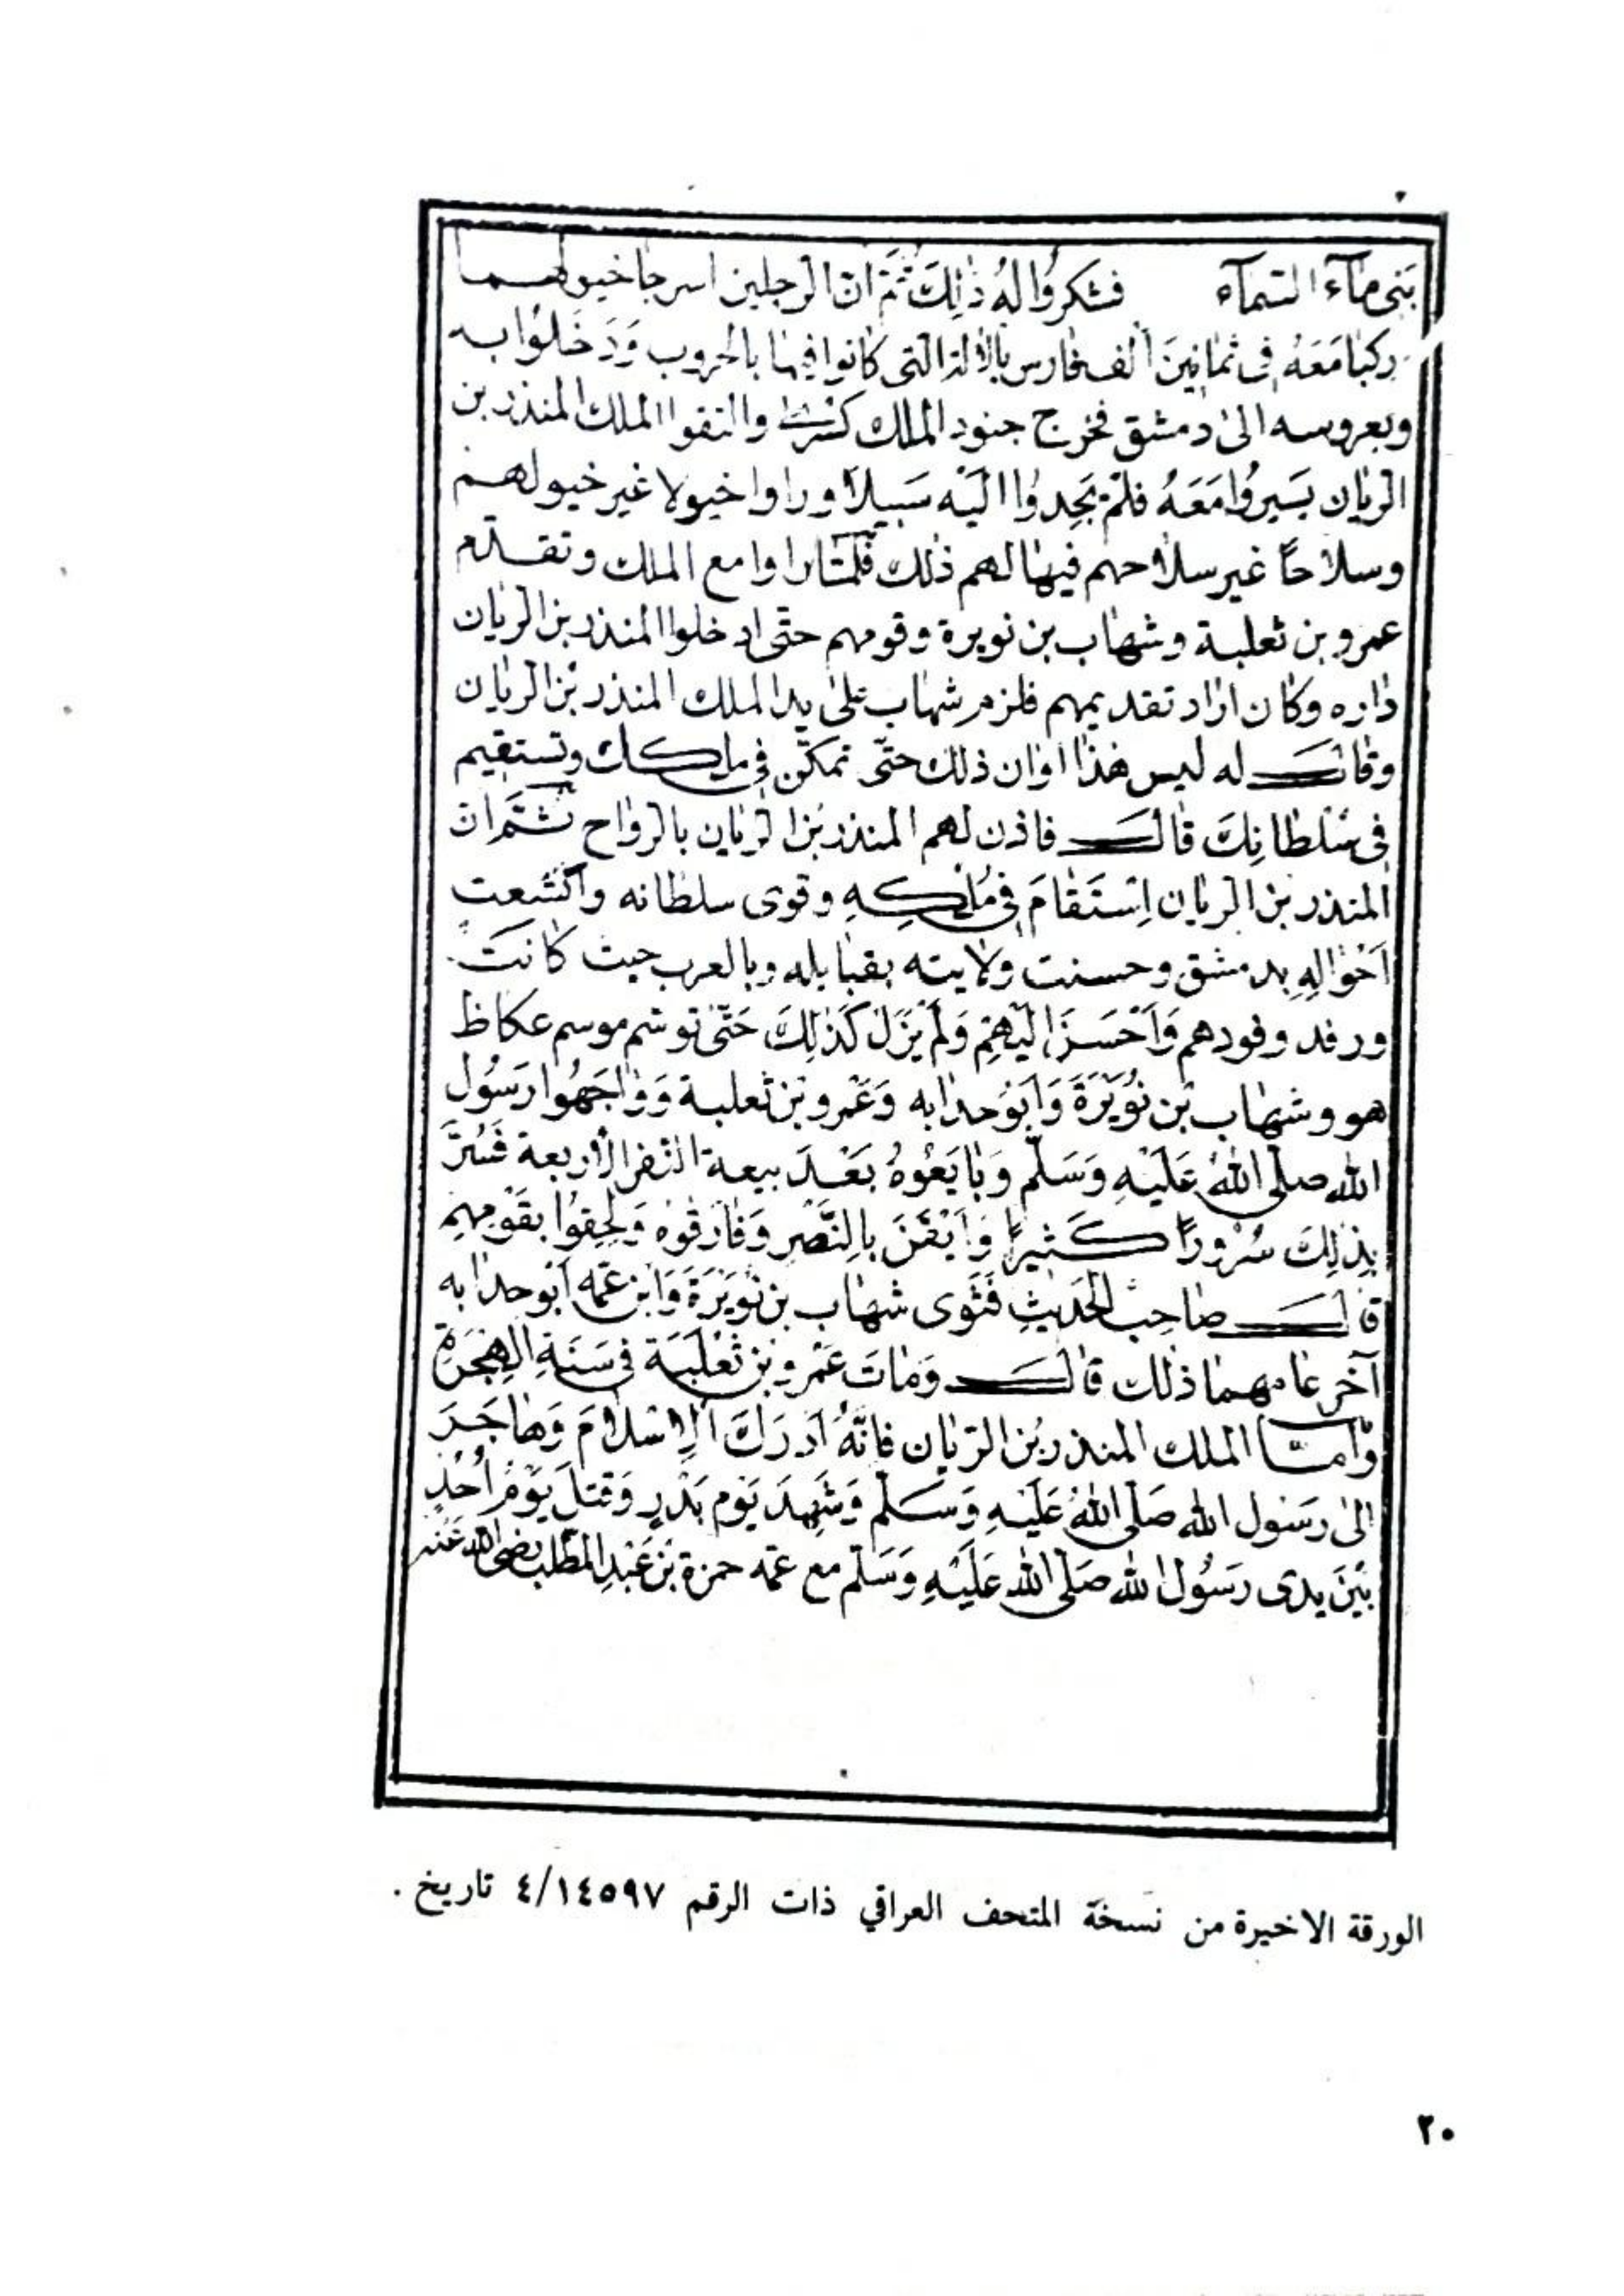 بَنى مآء السّمآء فشكرُوا لهُ ذٰلِكَ ثُمَّ انّ الرجلين اسرجا خيولهـما
ركبا مَعَهُ فى ثمانينَ الف فارس بالالة التى كانوا فيها بالحروب وَدَخَلوُا به
وبعروسه الى دمشق فخرج جنود الملك كسرى والتقوا الملك المنذر بن
الريان يَسيروُا مَعَهُ فلمْ يَجِدوُا اليْه سَبيلاً وراوا خيولا غير خيولهـم
وسلاحًا غير سلاحهم فيها لهم ذلك فلمّا راوا مع الملك وتقـدّم
عمرو بن ثعلبة وشهاب بن نويرة وقومهم حتى ادخلوا المنذر بن الريان
داره وكان اراد تقديمهم فلزم شهاب على يد الملك المنذر بْن الريان
وقالـــ له ليس هذا اوان ذلك حتّى تمكّن فى ملكك وتستقيم
فى سُلطانِكَ قالـــ فاذن لهم المنذر بن الريان بالرواح ثـمّ انّ
المنذر بن الريان اِسْتَقامَ فى مُلْكِهِ وقوى سلطانه واتّسعت
اَحْوالهِ بدمشق وحسنت ولايته بقبايله وبالعرب حيث كانَت
ورفد وفودهم وَاَحْسَنَ اِليْهِمْ وَلم يَزَل كَذٰلِكَ حَتّى توسّم موسم عكاظ
هو وشهاب بْن نُوَيْرَةَ وَاَبوُ حدابه وَعَمرو بْن ثعلبـة وَوٰاجَهُوا رَسُول
الله صلّى اللهُ عَلَيْهِ وَسَلّم وَبٰايَعْوهُ بَعْـدَ بيعة النفر الأربعة فَسُرَّ
بِذٰلِكَ سُرْورًا كَـثيرًا وَاَيْقَنَ بِالنَّصْرِ وَفٰارَقْوه وَلَحِقوُا بقَوْمِهِم
قٰالـــ صٰاحِبْ الحَديثِ فَثَوى شهاب بن نُوَيْرَةَ وَابن عَمّه ابوُ حدابه
آخر عامهما ذلك قالـــ وَمٰاتَ عَمْرو بْن ثَعْلَبَة فى سَنَةِ الهِجْرَةِ
وَامـّا الملك المنذر بْن الرّيان فانَّهُ اَدْرَكَ الاِسْلامَ وَهٰاجَـرَ
الى رَسُول الله صَلّى اللهُ عَلَيْهِ وَسَـلّم وَشَهِدَ يَوْم بَدْرٍ وَقتلَ يَوْمَ اُحُدٍ
بَيْنَ يدى رَسُول الله صَلّى الله عَلَيْهِ وَسَلّم مع عمّه حمزة بْن عَبْدِ المطّلب رضى الله عَنْه
الورقة الاخيرة من نسخة المتحف العراقي ذات الرقم ٤/١٤٥٩٧ تاريخ .
٢٠